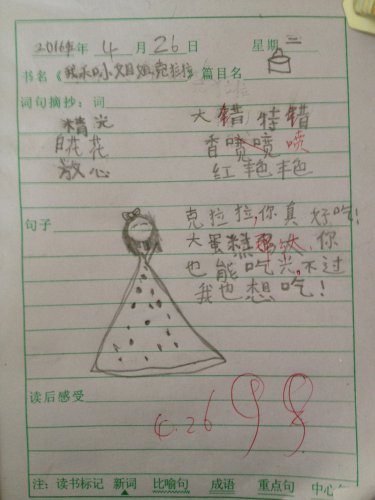 2016年 年 4 月 26 日 星期 二
书名《 小 姐 克拉拉 篇目名
词句摘抄：词 大错特错
精光 香喷喷 喷
放心 红艳艳
句子 克拉拉，你真好吃！
大蛋糕 大，你
也能吃光。不过
我也想吃！
读后感受
4.26 99
注：读书标记 新词 比喻句 成语 重点句 中心